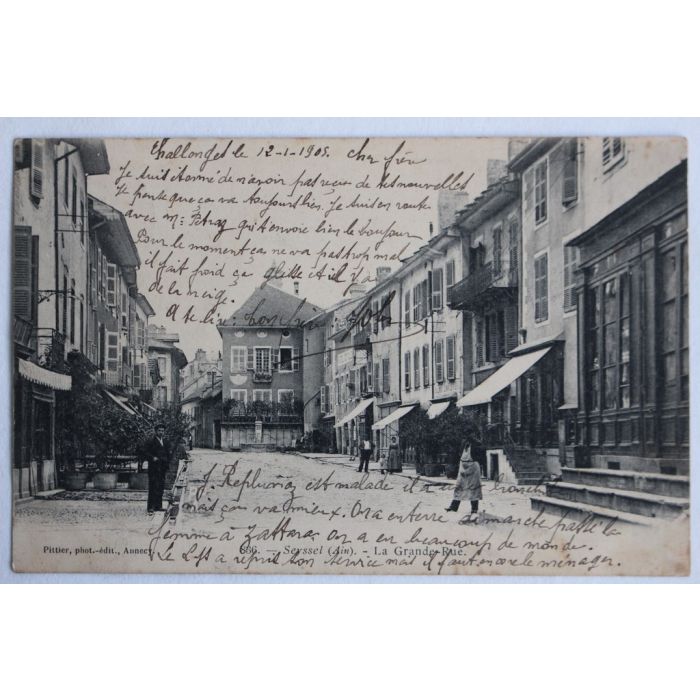 Challonges le 12-1-1905. Cher frère
Je suis étonné de n'avoir pas reçu de tes nouvelles
Je pense que ça va toujours bien. Je suis en route
avec M. qui t'envoie bien le bonjour
Pour le moment ça ne va pas trop mal
il fait froid ça glisse et il y a
de la neige.
A te lire
J. est malade il a
mais ça va mieux. On a enterré dimanche passé la
femme à on a eu beaucoup de monde.
Le a repris son service mais il faut encore le ménager.
Pittier, phot.-édit., Annecy
886. — Seyssel (Ain). — La Grande-Rue.